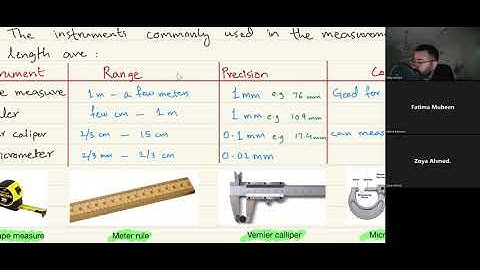 The instruments commonly used in the
length are :
Range Precision
measure 1 m - a few meters 1 mm e.g 76 mm Good for
few cm - 1 m 1 mm e.g 109 mm
caliper 2/3 cm - 15 cm 0.1 mm e.g 17.4 mm can
2/3 mm - 2/3 cm 0.01 mm
measure Meter rule Vernier calliper
Fatima Mubeen
Zoya Ahmed.